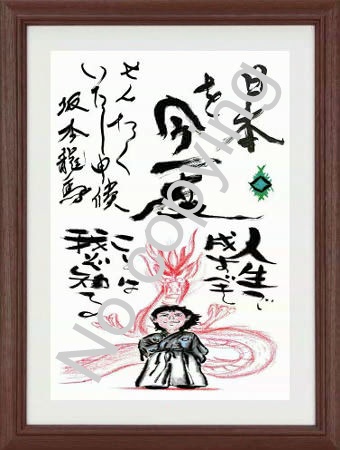 日本
を
今一度
せんたく
いたし申候
坂本龍馬
人生で
成すべき
ことは
我ぞ知る
No copying